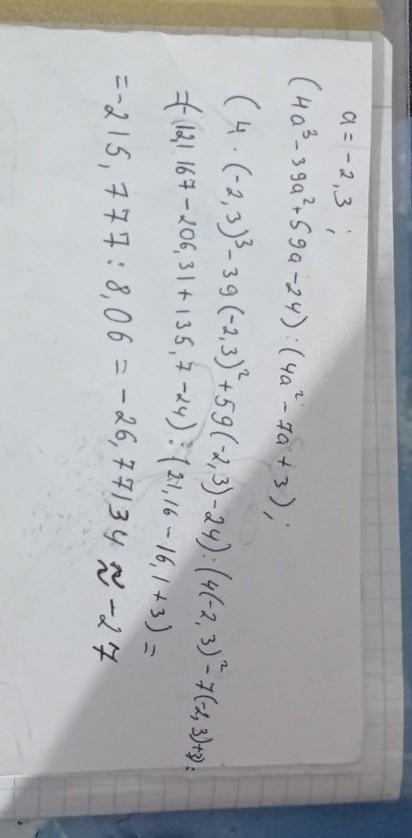 a = -2,3 ;
(4a³ - 39a² + 59a - 24) : (4a² - 7a + 3) ;
(4 · (-2,3)³ - 39(-2,3)² + 59(-2,3) - 24) : (4(-2,3)² - 7(-2,3) + 3) =
= (-12,167 - 206,31 + 135,7 - 24) : (21,16 - 16,1 + 3) =
= -215,777 : 8,06 = -26,77134 ≈ -27